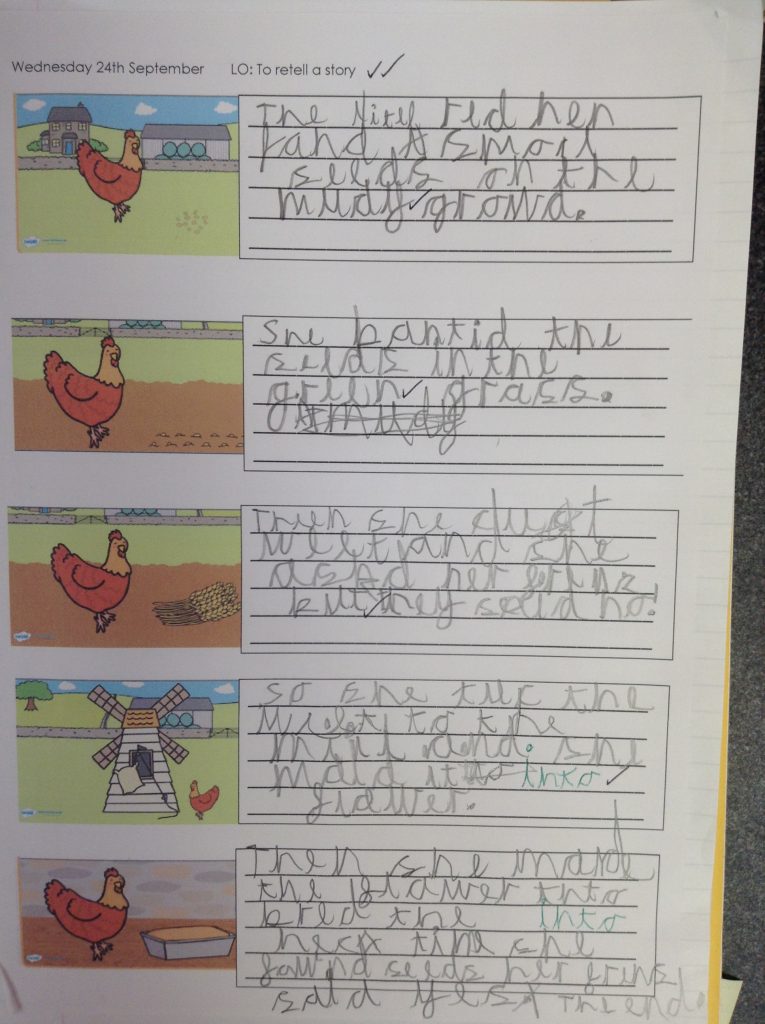 Wednesday 24th September LO: To retell a story
The red hen
fand A smorl
seeds on the
mudy grownd.
She pantid the
seeds in the
green grass.
Then she
weet and she
her frinz
but they said no.
So she tuc the
to the
mill and she
maid it into
flawer.
Then she mard
the flawer into
bred the into
necx time she
fawnd seeds her frins
said yes. The end.